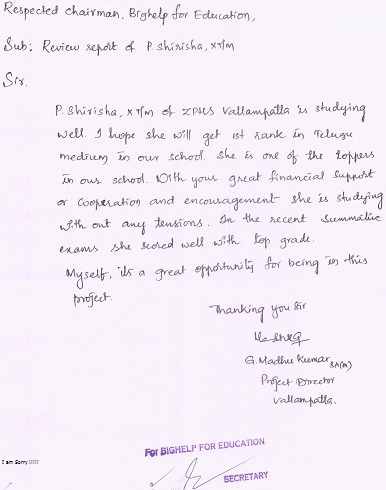 Respected chairman, Bighelp for Education,
Sub: Review report of P. Shirisha, XT/m
Sir,
P. Shirisha, XT/m of ZPHS Vallampatla is studying
well. I hope she will get 1st rank in Telugu
medium in our school. She is one of the toppers
in our school. With your great financial support
or cooperation and encouragement she is studying
with out any tensions. In the recent Summative
exams she scored well with top grade.
Myself, it's a great opportunity for being in this
project.
Thanking you Sir
G. Madhu Kumar, SA(M)
Project Director
Vallampatla.
For BIGHELP FOR EDUCATION
I am Sorry !!!!!
SECRETARY